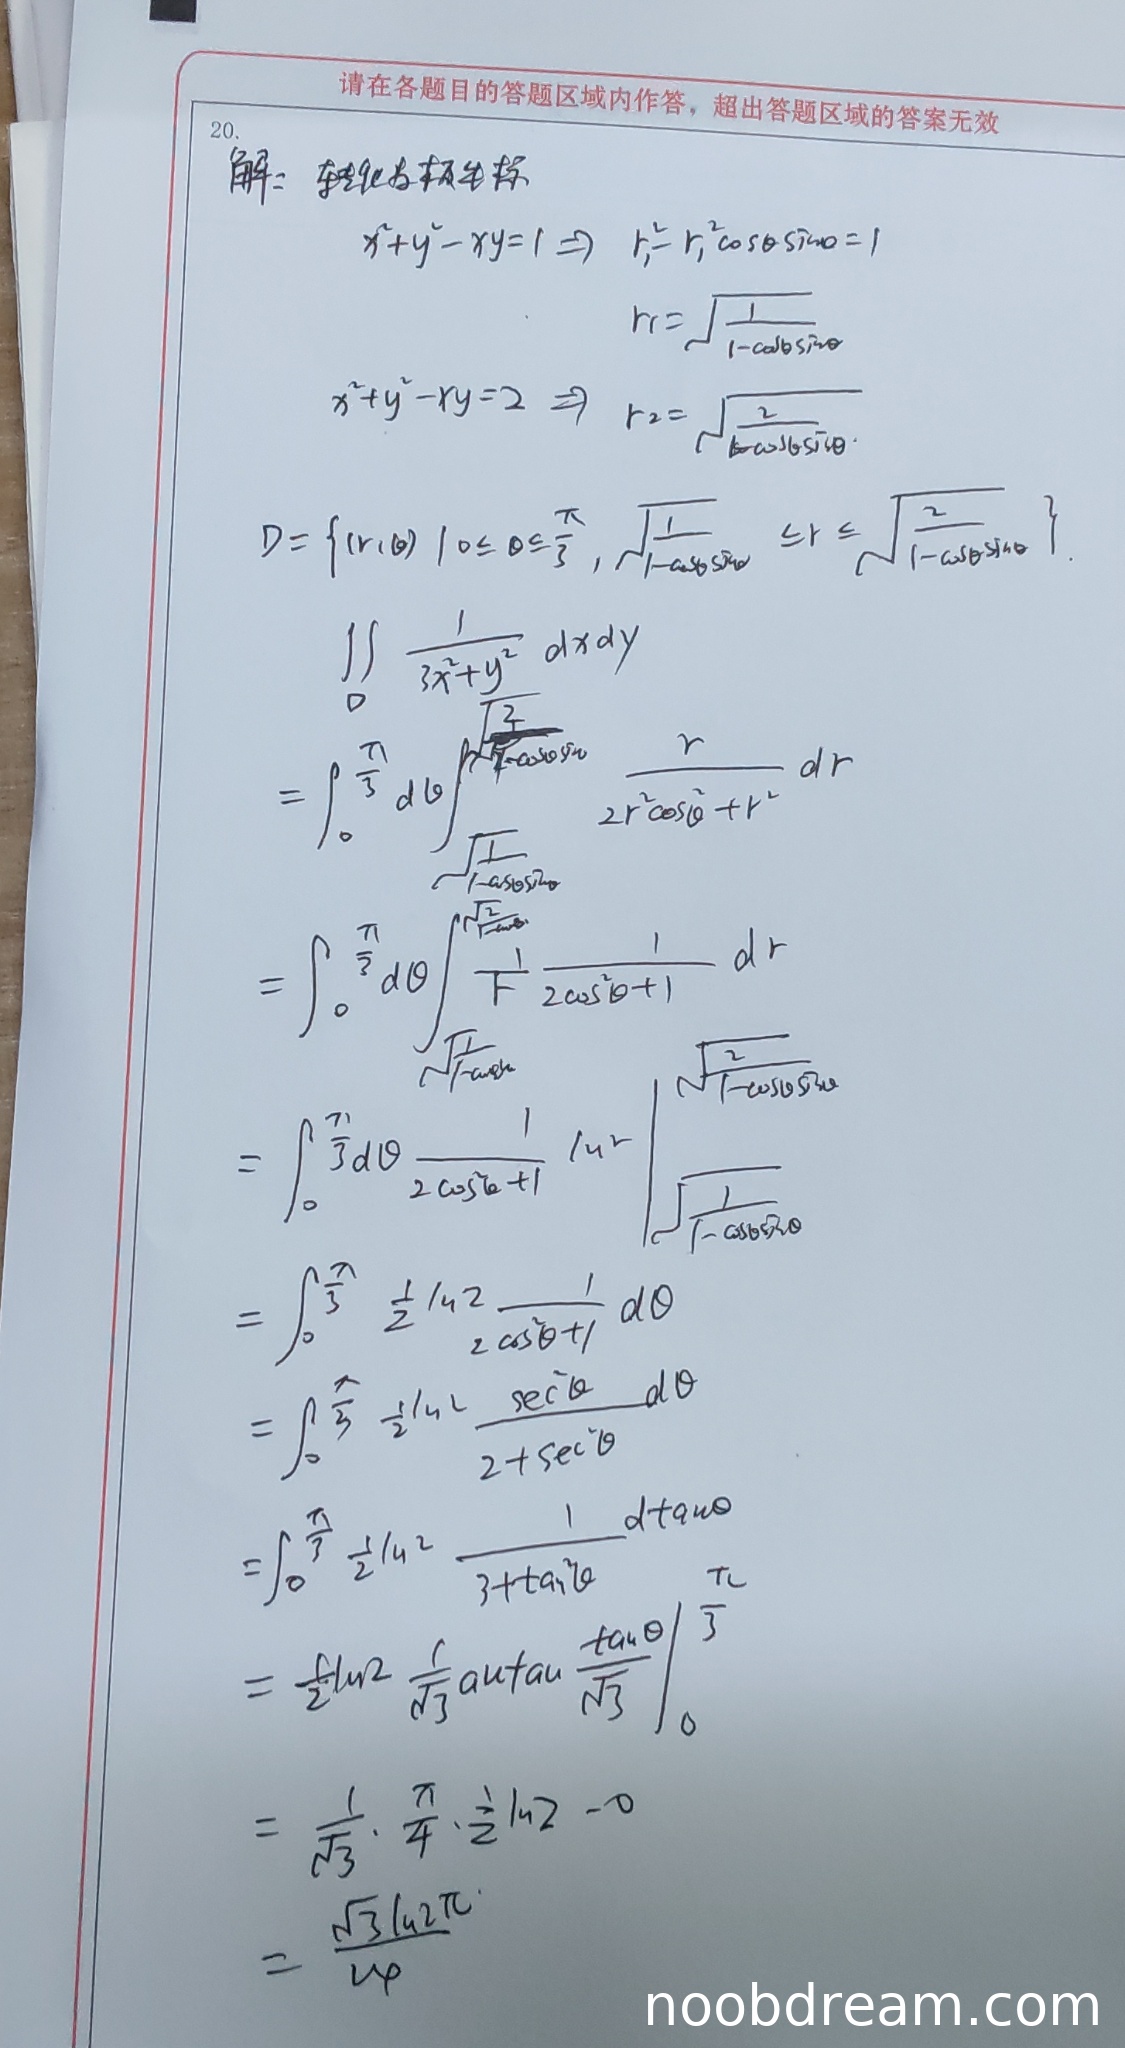 请在各题目的答题区域内作答，超出答题区域的答案无效
20.
解: 转化为极坐标
x²+y²-xy=1 ⇒ r₁²-r₁²cosθsinθ=1
r₁=√(1/(1-cosθsinθ))
x²+y²-xy=2 ⇒ r₂=√(2/(1-cosθsinθ)).
D={(r,θ) | 0≤θ≤π/3, √(1/(1-cosθsinθ)) ≤r≤ √(2/(1-cosθsinθ)) }.
∬_D 1/(3x²+y²) dxdy
=∫₀^(π/3) dθ ∫_(√(1/(1-cosθsinθ)))^(√(2/(1-cosθsinθ))) r/(2r²cosθ²+r²) dr
=∫₀^(π/3) dθ ∫ 1/r 1/(2cos²θ+1) dr
=∫₀^(π/3) dθ 1/(2cos²θ+1) lnr |_(√(1/(1-cosθsinθ)))^(√(2/(1-cosθsinθ)))
=∫₀^(π/3) 1/2 ln2 1/(2cos²θ+1) dθ
=∫₀^(π/3) 1/2 ln2 sec²θ/(2+sec²θ) dθ
=∫₀^(π/3) 1/2 ln2 1/(3+tan²θ) dtanθ
= 1/2 ln2 1/√3 arctan tanθ/√3 |₀^(π/3)
= 1/√3 · π/4 · 1/2 ln2 -0
= √3 ln2 π/24
noobdream.com